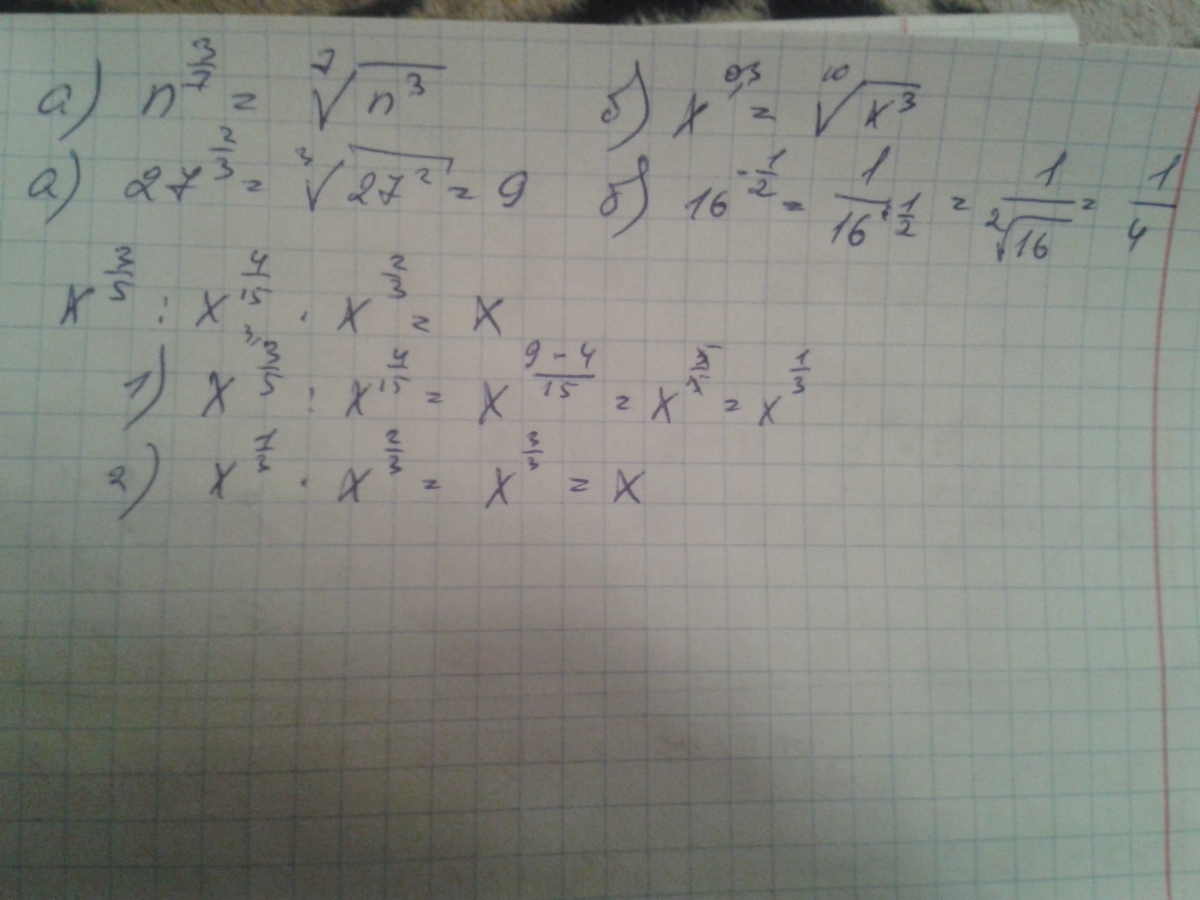 а) n^(3/7) = ⁷√(n³) б) x^(0,3) = ¹⁰√(x³)
а) 27^(2/3) = ³√(27²) = 9 б) 16^(-1/2) = 1/16^(1/2) = 1/²√16 = 1/4
x^(3/5) : x^(4/15) · x^(2/3) = x
1) x^(3/5) : x^(4/15) = x^((9-4)/15) = x^(5/15) = x^(1/3)
2) x^(1/3) · x^(2/3) = x^(3/3) = x